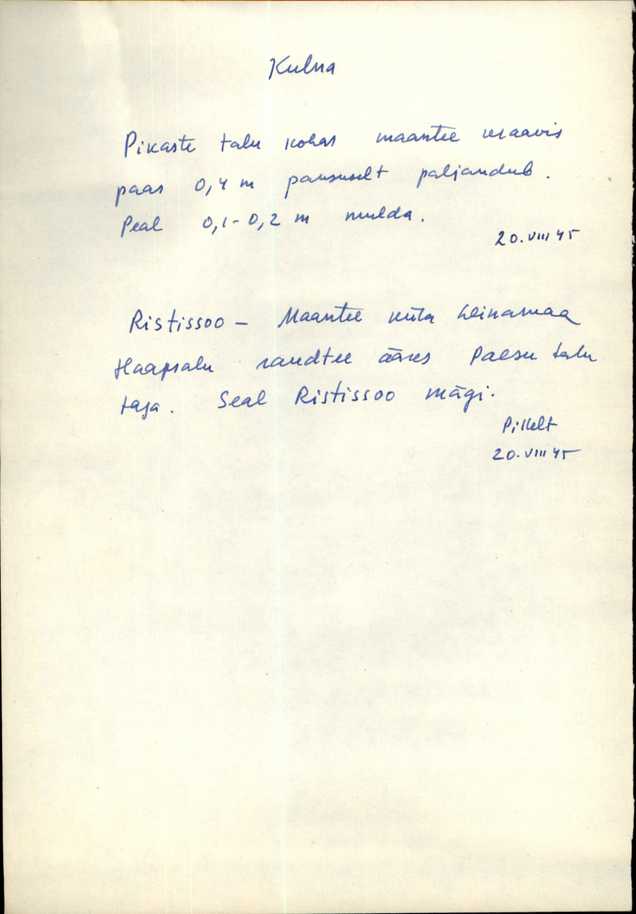 Kulna
Pikaste talu kohas maantee kraavis
paas 0,4 m paksuselt paljandub.
Peal 0,1-0,2 m mulda.
20.VIII 45
Ristissoo - Maantee heinamaa
Haapsalu raudtee ääres Paesu talu
taga. Seal Ristissoo mägi.
20.VIII 45